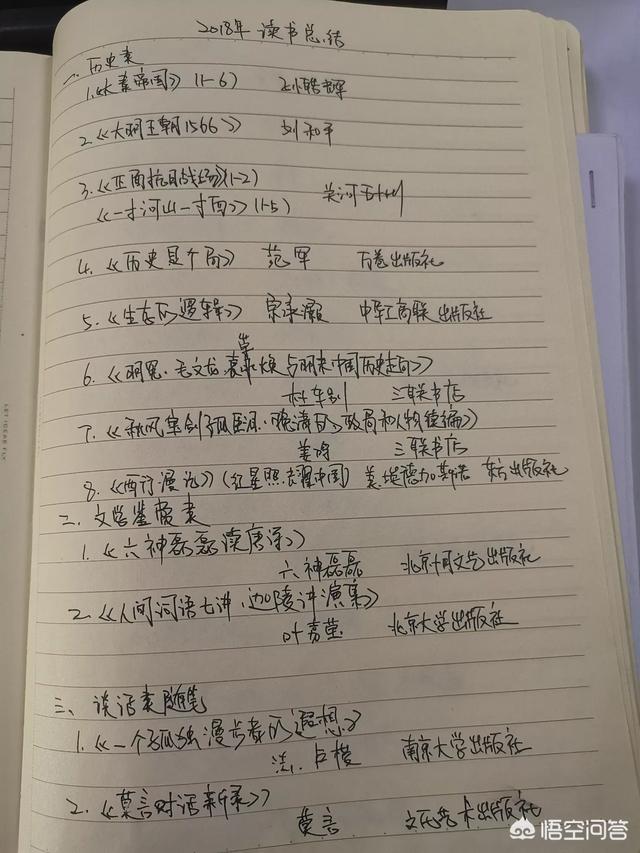 2018年 读书总结
一、历史类
1.《大秦帝国》(1-6) 孙皓晖
2.《大明王朝1566》 刘和平
3.《正面抗日战场》(1-2)
《一寸河山一寸血》(1-5) 关河五十州
4.《历史是个局》 范军 万卷出版社
5.《生存的逻辑》 宗承灏 中华工商联出版社
6.《明冤·毛文龙袁崇焕与明末中国历史走向》
杜车别 三联书店
7.《秋风宝剑孤臣泪·晚清的政局和人物续编》
姜鸣 三联书店
8.《西行漫记》(红星照耀中国) 美.埃德加斯诺 东方出版社
二、文学鉴赏类
1.《六神磊磊读唐诗》
六神磊磊 北京十月文艺出版社
2.《人间词话七讲·迦陵讲演集》
叶嘉莹 北京大学出版社
三、谈话类随笔
1.《一个孤独漫步者的遐想》
法. 卢梭 南京大学出版社
2.《莫言对话新录》
莫言 文化艺术出版社
LET IDEAS FLY
悟空问答